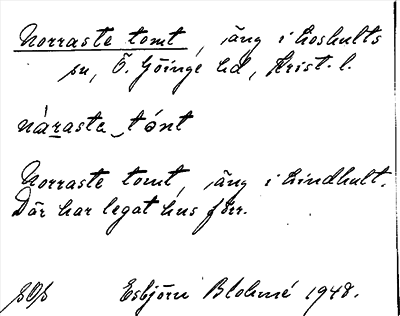 Norraste tomt, äng i Loshults
sn, Ö. Göinge hd, Krist. l.
nàrasta‿tónt
Norraste tomt, äng i Lindhult.
Där har legat hus förr.
Esbjörn Blohmé 1948.